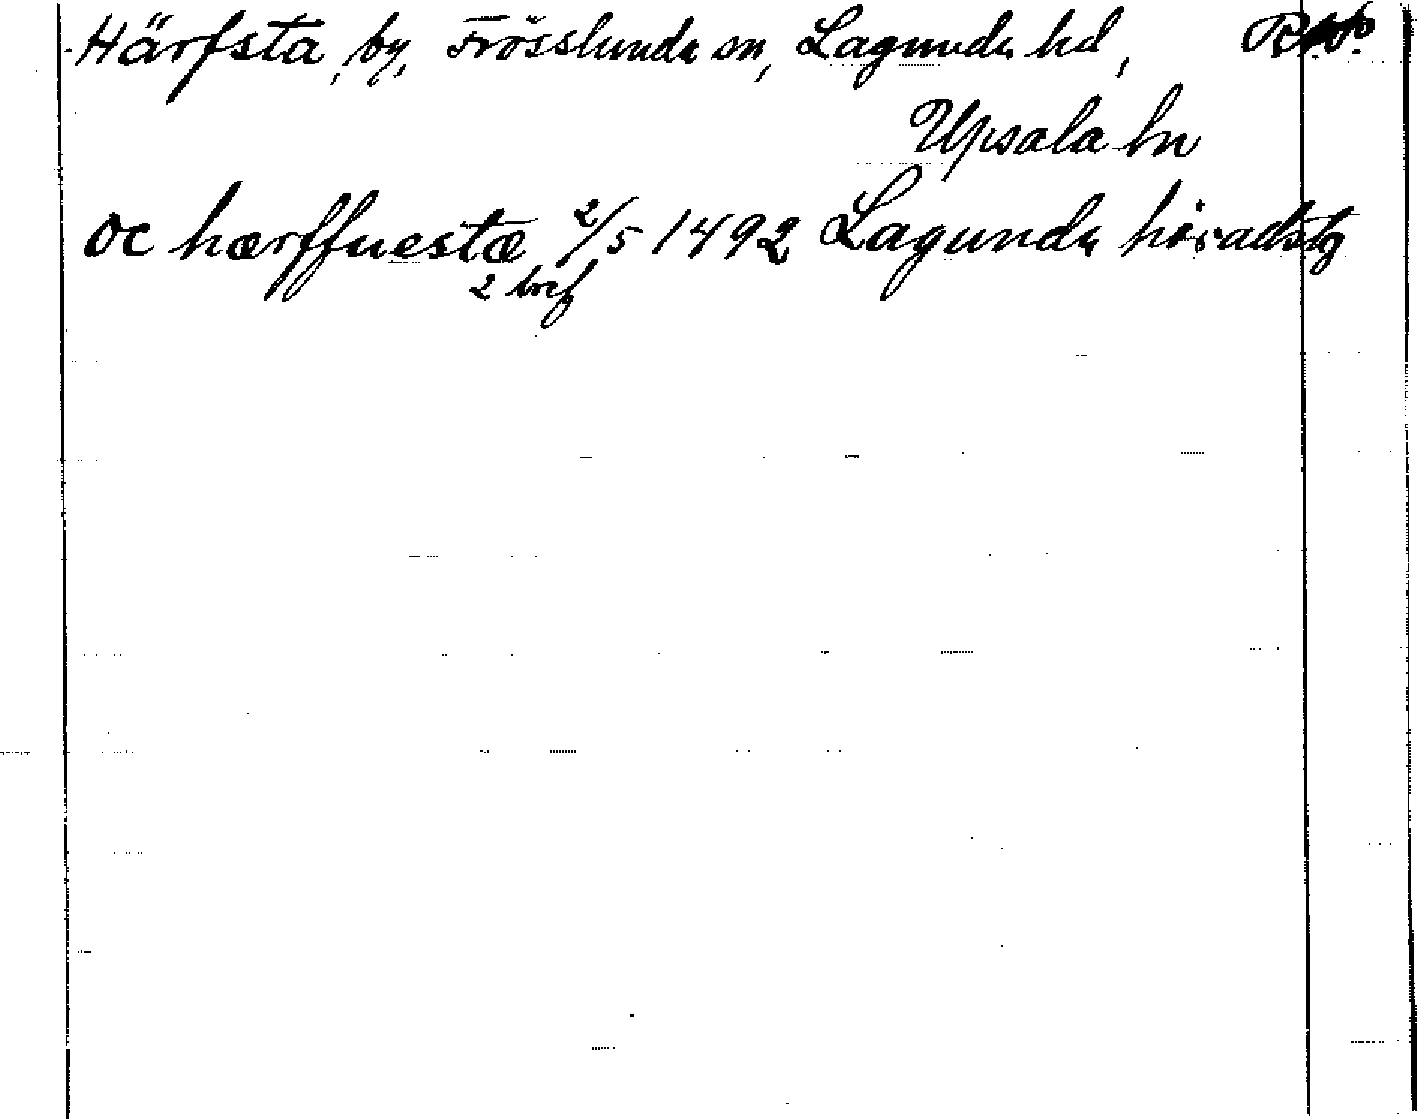 Härfsta, by, Frösslunda sn, Lagunda hd,
Upsala ln
oc hærffuestæ 2/5 1492 Lagunda häradstg
2 bref